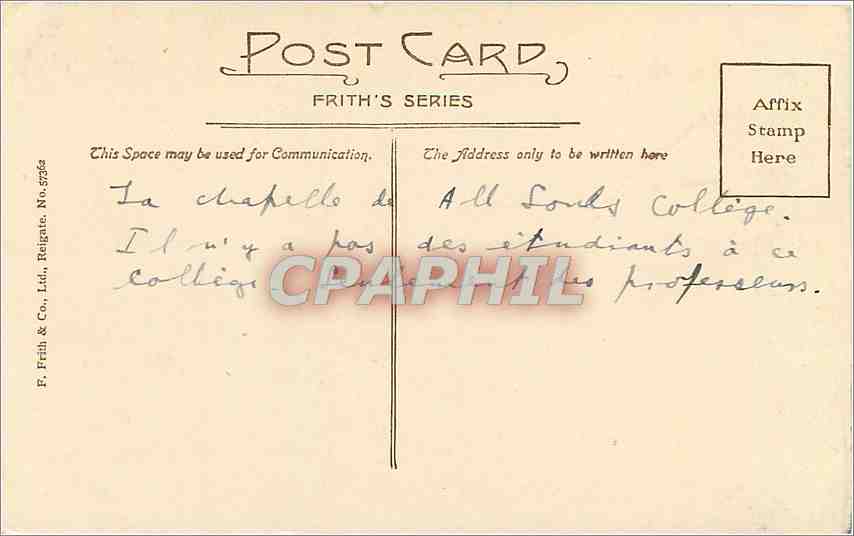 POST CARD
FRITH'S SERIES
Affix
Stamp
Here
This Space may be used for Communication.
The Address only to be written here
La chapelle de All Souls Collège.
Il n'y a pas des étudiants à ce
collège. Seulement les professeurs.
CPAPHIL
F. Frith & Co., Ltd., Reigate. No. 57362